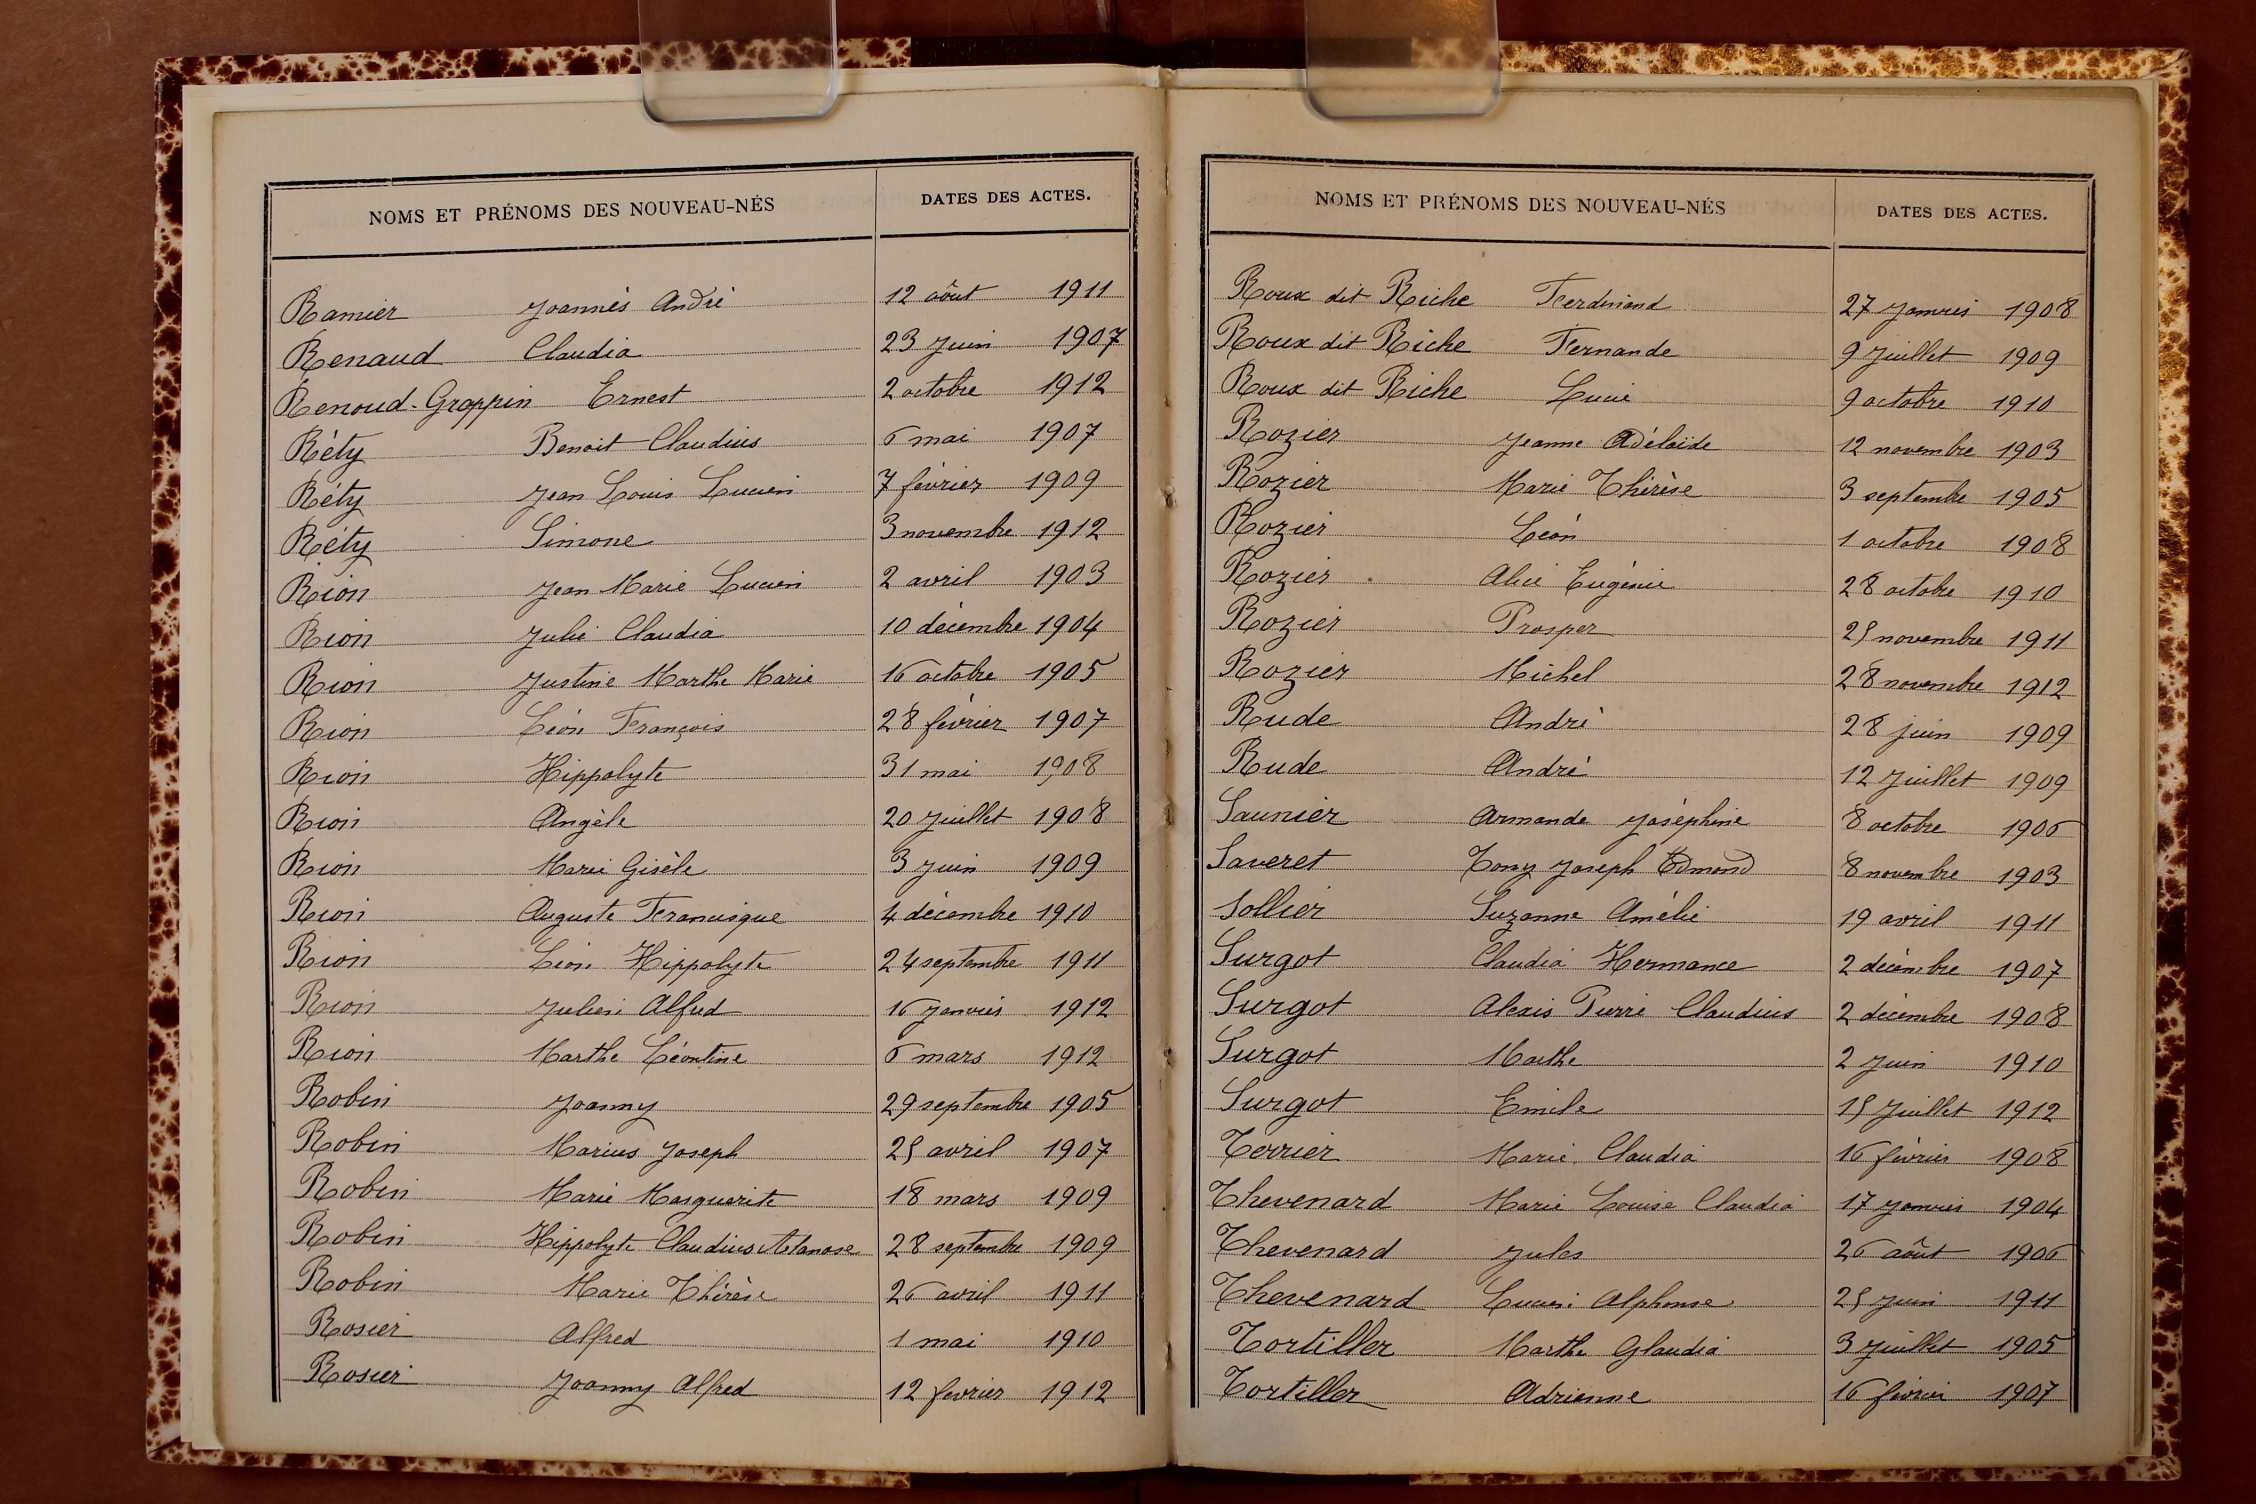 NOMS ET PRÉNOMS DES NOUVEAU-NÉS DATES DES ACTES.
Ramier Joannès André 12 aôut 1911
Renaud Claudia 23 Juin 1907
Renoud-Grappin Ernest 2 octobre 1912
Réty Benoit Claudius 6 mai 1907
Réty Jean Louis Lucien 7 février 1909
Réty Simone 3 novembre 1912
Rion Jean Marie Lucien 2 avril 1903
Rion Julie Claudia 10 décembre 1904
Rion Justine Marthe Marie 16 octobre 1905
Rion Léon François 28 février 1907
Rion Hippolyte 31 mai 1908
Rion Angèle 20 Juillet 1908
Rion Marie Gisèle 3 Juin 1909
Rion Auguste Francisque 4 décembre 1910
Rion Léon Hippolyte 24 septembre 1911
Rion Julien Alfred 16 Janvier 1912
Rion Marthe Léontine 6 mars 1912
Robin Joanny 29 septembre 1905
Robin Marius Joseph 25 avril 1907
Robin Marie Marguerite 18 mars 1909
Robin Hippolyte Claudius 28 septembre 1909
Robin Marie Thérèse 26 avril 1911
Rosier Alfred 1 mai 1910
Rosier Joanny Alfred 12 février 1912
NOMS ET PRÉNOMS DES NOUVEAU-NÉS DATES DES ACTES.
Roux dit Riche Ferdinand 27 Janvier 1908
Roux dit Riche Fernande 9 Juillet 1909
Roux dit Riche Lucie 9 octobre 1910
Rozier Jeanne Adélaïde 12 novembre 1903
Rozier Marie Thérèse 3 septembre 1905
Rozier Léon 1 octobre 1908
Rozier Alice Eugénie 28 octobre 1910
Rozier Prosper 25 novembre 1911
Rozier Michel 28 novembre 1912
Rude André 28 juin 1909
Rude André 12 Juillet 1909
Saunier Armande Joséphine 8 octobre 1906
Saveret Tony Joseph Edmond 8 novembre 1903
Sollier Suzanne Amélie 19 avril 1911
Surgot Claudia Hermance 2 décembre 1907
Surgot Alexis Pierre Claudius 2 décembre 1908
Surgot Marthe 2 Juin 1910
Surgot Emile 15 Juillet 1912
Terrier Marie Claudia 16 février 1908
Thevenard Marie Louise Claudia 17 Janvier 1904
Thevenard Jules 26 aôut 1906
Thevenard Lucien Alphonse 25 Juin 1911
Tortiller Marthe Glaudia 3 Juillet 1905
Tortiller Adrienne 16 février 1907